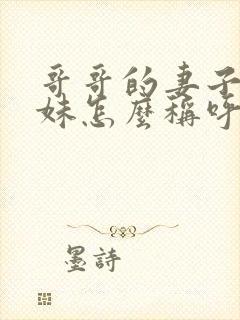 哥哥的妻子
妹怎麼稱呼
墨詩